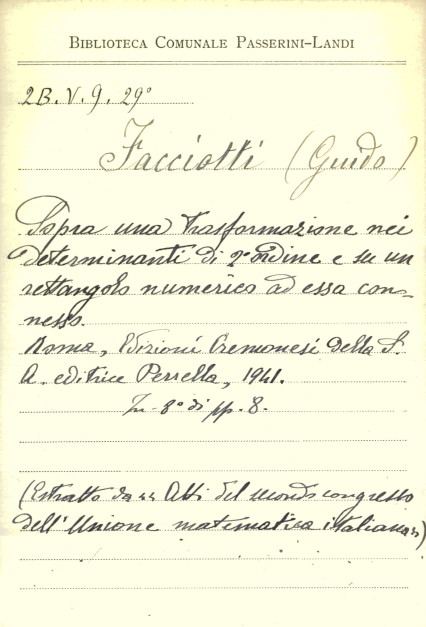 BIBLIOTECA COMUNALE PASSERINI-LANDI
2B. V. 9. 29°
Facciotti (Guido)
Sopra una trasformazione nei
determinanti di 2° ordine e su un
rettangolo numerico ad essa con-
nesso.
Roma, Edizioni Cremonesi della S.
A. editrice Perrella, 1941.
In-8° di pp. 8.
(Estratto da "Atti del secondo congresso
dell'Unione matematica italiana")